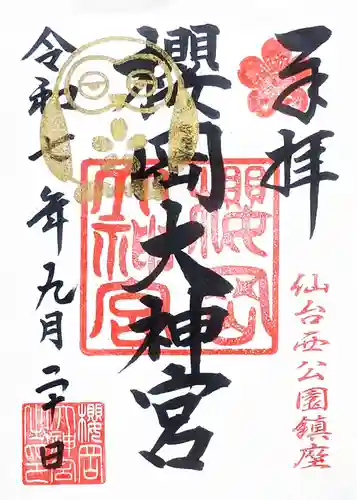 奉拝
仙台西公園鎮座
櫻岡大神宮
櫻岡大神宮
令和七年九月二十日
櫻岡大神宮之印